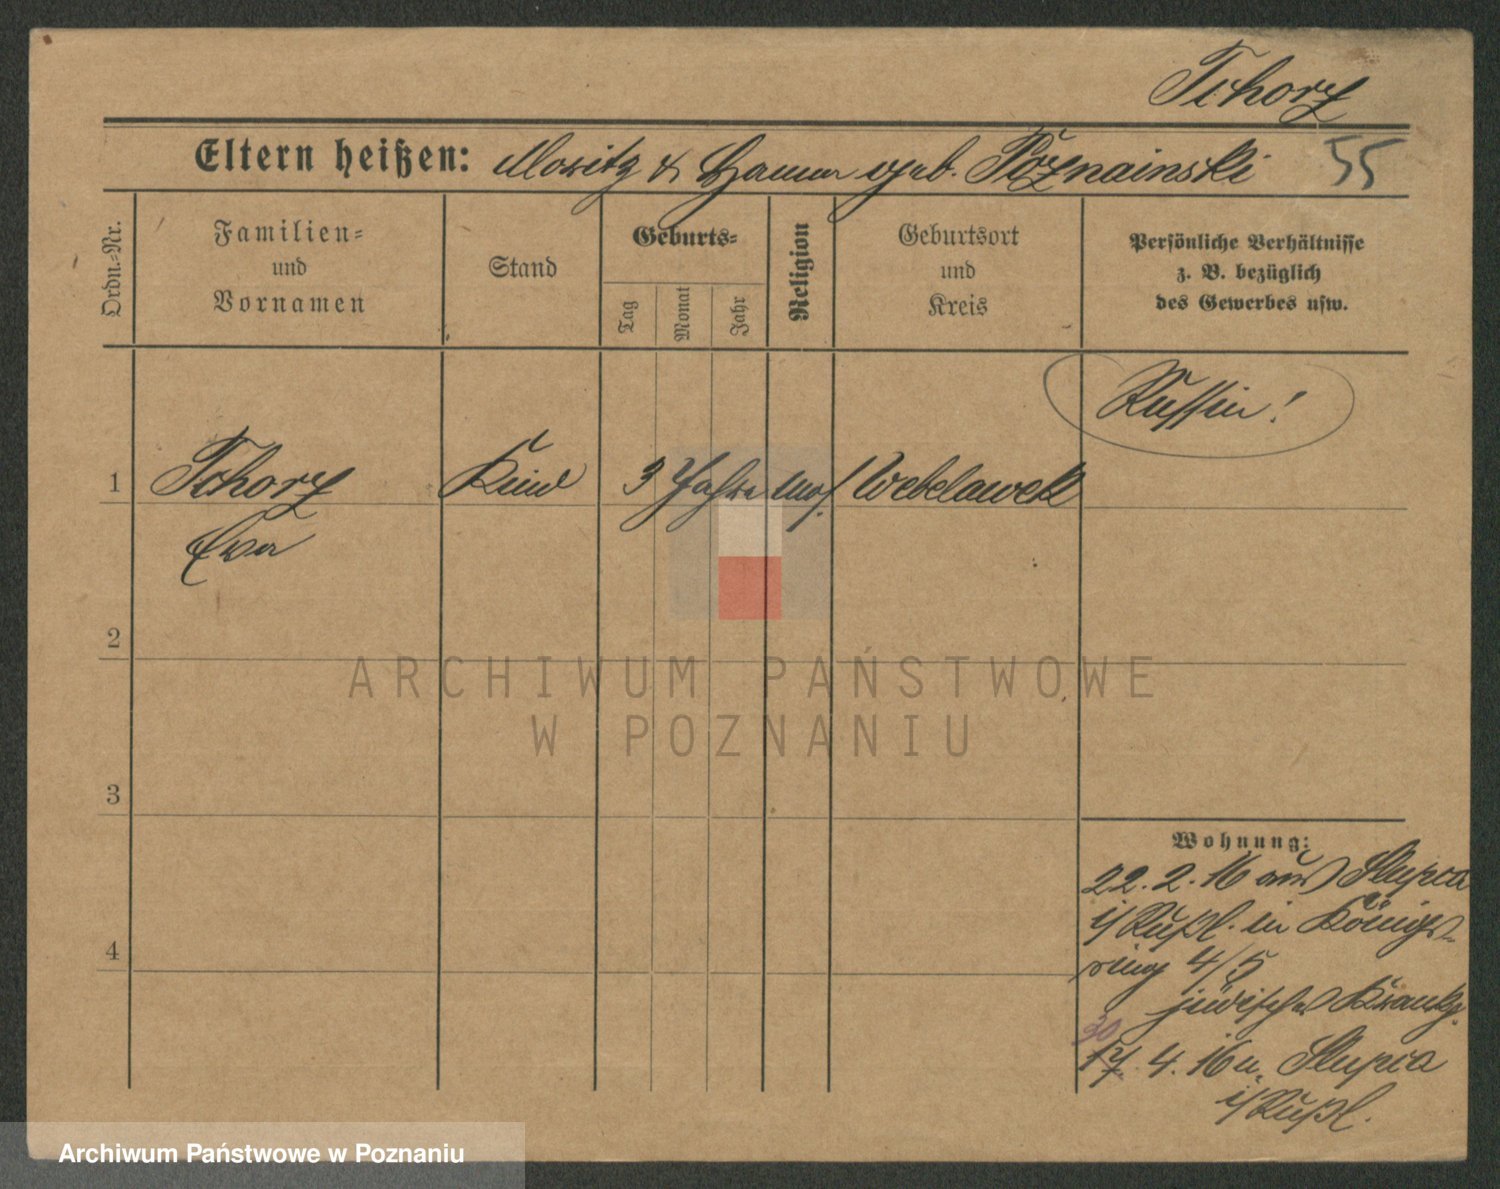 Tchorz
Eltern heißen: Moritz & Hanna geb. Poznainski 55
Ordn.-Nr.
Familien-
und
Vornamen
Stand
Geburts-
Tag
Monat
Jahr
Religion
Geburtsort
und
Kreis
Persönliche Verhältnisse
z. B. bezüglich
des Gewerbes usw.
Russin!
1 Tchorz Kind 3 Jahre mos. Webelawek
Eva
2
3
4
Wohnung:
22.2.16 aus Slupca
i/Rußl. in Königs-
ring 4/5
jüdisches Krankh.
30
17.4.16 n. Slupca
i/Rußl.
ARCHIWUM PAŃSTWOWE
W POZNANIU
Archiwum Państwowe w Poznaniu